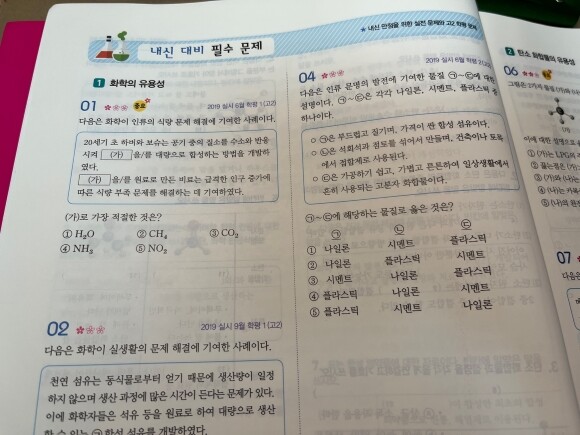 내신 대비 필수 문제
★ 내신 만점을 위한 실전 문제와 고2 학평 문제
1 화학의 유용성
01 중요 2019 실시 6월 학평 1(고2)
다음은 화학이 인류의 식량 문제 해결에 기여한 사례이다.
20세기 초 하버와 보슈는 공기 중의 질소를 수소와 반응
시켜 (가) 을/를 대량으로 합성하는 방법을 개발하
였다.
(가) 을/를 원료로 만든 비료는 급격한 인구 증가에
따른 식량 부족 문제를 해결하는 데 기여하였다.
(가)로 가장 적절한 것은?
① H₂O ② CH₄ ③ CO₂
④ NH₃ ⑤ NO₂
02 2019 실시 9월 학평 1(고2)
다음은 화학이 실생활의 문제 해결에 기여한 사례이다.
천연 섬유는 동식물로부터 얻기 때문에 생산량이 일정
하지 않으며 생산 과정에 많은 시간이 든다는 문제가 있다.
이에 화학자들은 석유 등을 원료로 하여 대량으로 생산
할 수 있는 ㉠ 합성 섬유를 개발하였다.
04 2019 실시 6월 학평 2(고2)
다음은 인류 문명의 발전에 기여한 물질 ㉠~㉢에 대한
설명이다. ㉠~㉢은 각각 나일론, 시멘트, 플라스틱 중
하나이다.
○ ㉠은 부드럽고 질기며, 가격이 싼 합성 섬유이다.
○ ㉡은 석회석과 점토를 섞어서 만들며, 건축이나 토목
에서 접합제로 사용된다.
○ ㉢은 가공하기 쉽고, 가볍고 튼튼하여 일상생활에서
흔히 사용되는 고분자 화합물이다.
㉠~㉢에 해당하는 물질로 옳은 것은?
㉠ ㉡ ㉢
① 나일론 시멘트 플라스틱
② 나일론 플라스틱 시멘트
③ 시멘트 나일론 플라스틱
④ 플라스틱 나일론 시멘트
⑤ 플라스틱 시멘트 나일론
2 탄소 화합물의 유용성
06
07